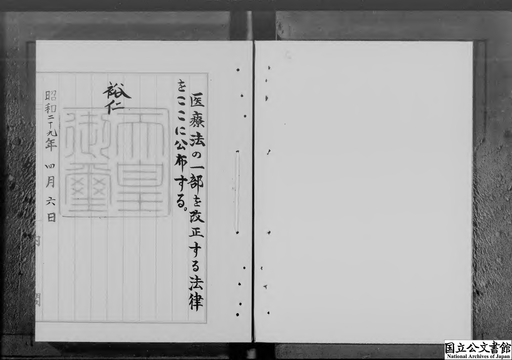 医療法の一部を改正する法律
をここに公布する。
裕仁
天皇
御璽
昭和二十九年四月六日
内閣
国立公文書館
National Archives of Japan